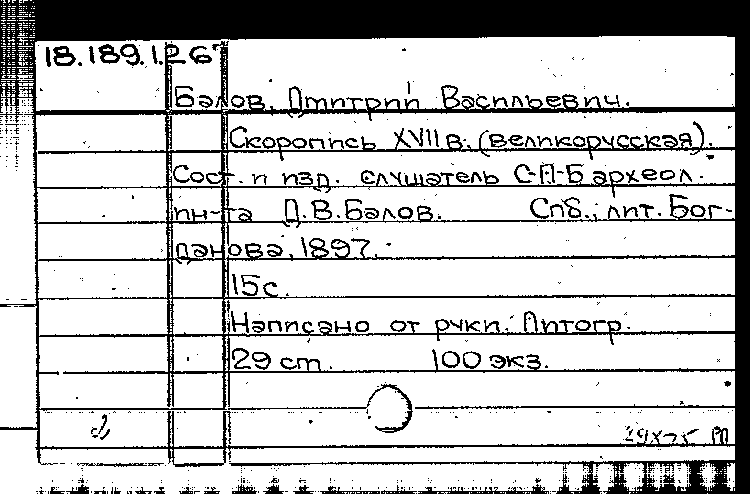 18.189.1.267
Балов, Дмитрий Васильевич.
Скоропись XVII в. (великорусская).
Сост. и изд. слушатель С-П-Б археол.
ин-та Д.В.Балов. Спб., лит. Бог-
данова, 1897.
15с.
Написано от руки. Литогр.
29 cm. 100 экз.